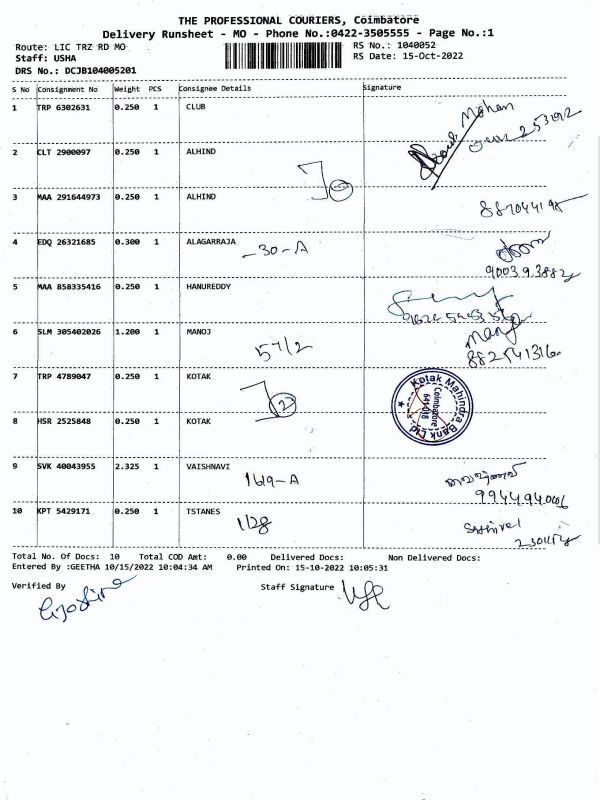 THE PROFESSIONAL COURIERS, Coimbatore
Delivery Runsheet - MO - Phone No.:0422-3505555 - Page No.:1
Route: LIC TRZ RD MO RS No.: 1040052
Staff: USHA RS Date: 15-Oct-2022
DRS No.: DCJB104005201
S No Consignment No Weight PCS Consignee Details Signature
1 TRP 6302631 0.250 1 CLUB
Mohan
2 CLT 2900097 0.250 1 ALHIND
3 MAA 291644973 0.250 1 ALHIND
4 EDQ 26321685 0.300 1 ALAGARRAJA
-30-A
5 MAA 858335416 0.250 1 HANUREDDY
6 SLM 305402026 1.200 1 MANOJ
57/2
7 TRP 4789047 0.250 1 KOTAK
2
Kotak Mahindra Bank Ltd.
Coimbatore
641018
8 HSR 2525848 0.250 1 KOTAK
9 SVK 40043955 2.325 1 VAISHNAVI
169-A
10 KPT 5429171 0.250 1 TSTANES
1/28
Total No. Of Docs: 10 Total COD Amt: 0.00 Delivered Docs: Non Delivered Docs:
Entered By :GEETHA 10/15/2022 10:04:34 AM Printed On: 15-10-2022 10:05:31
Verified By Staff Signature